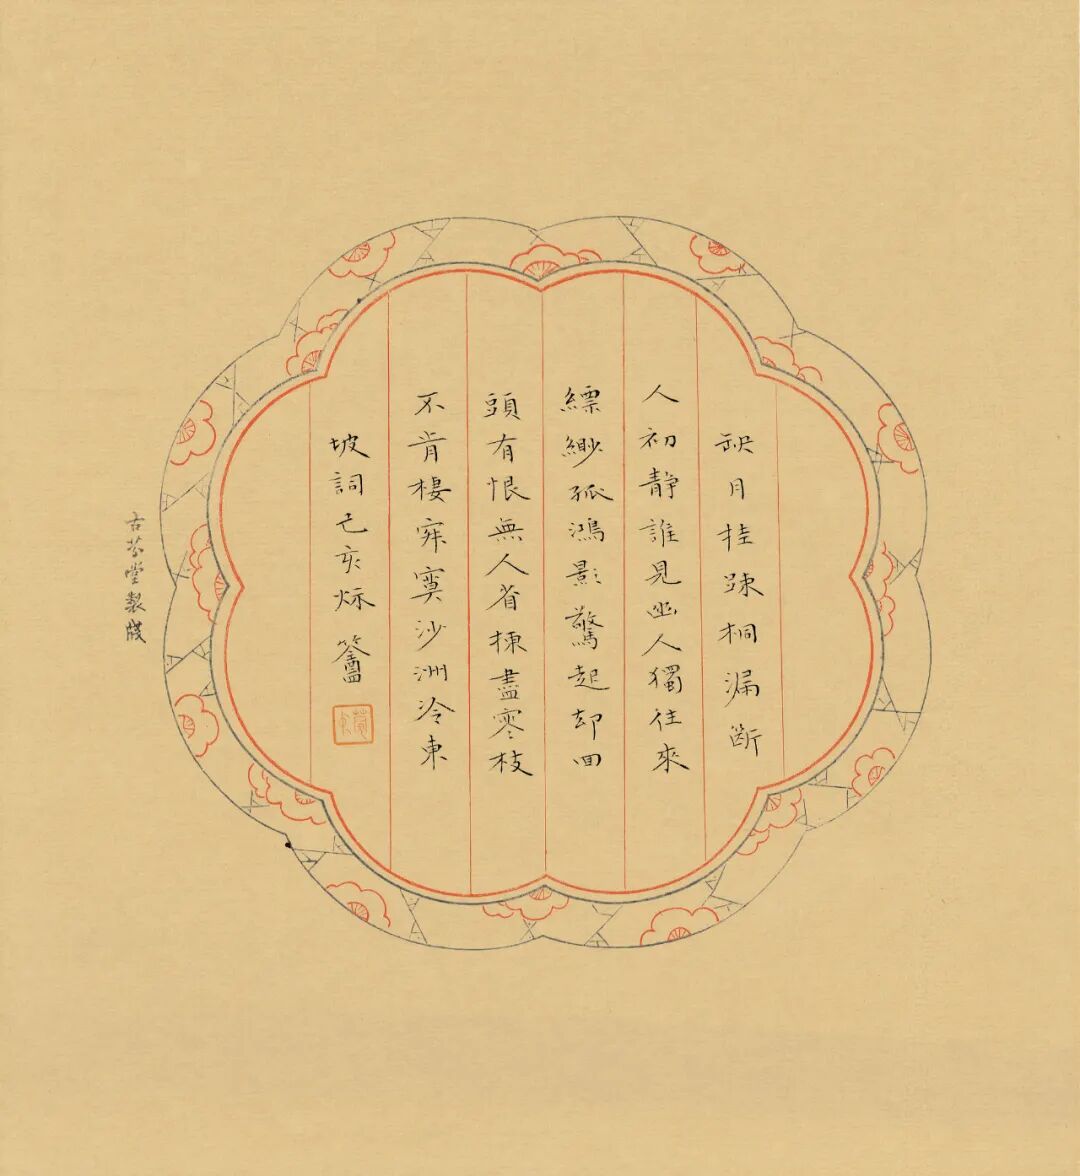 缺月挂踈桐漏断
人初静誰見幽人獨往來
縹緲孤鴻影驚起却回
頭有恨無人省揀盡寒枝
不肯棲寂寞沙洲冷東
坡詞己亥秌
古芬堂製牋